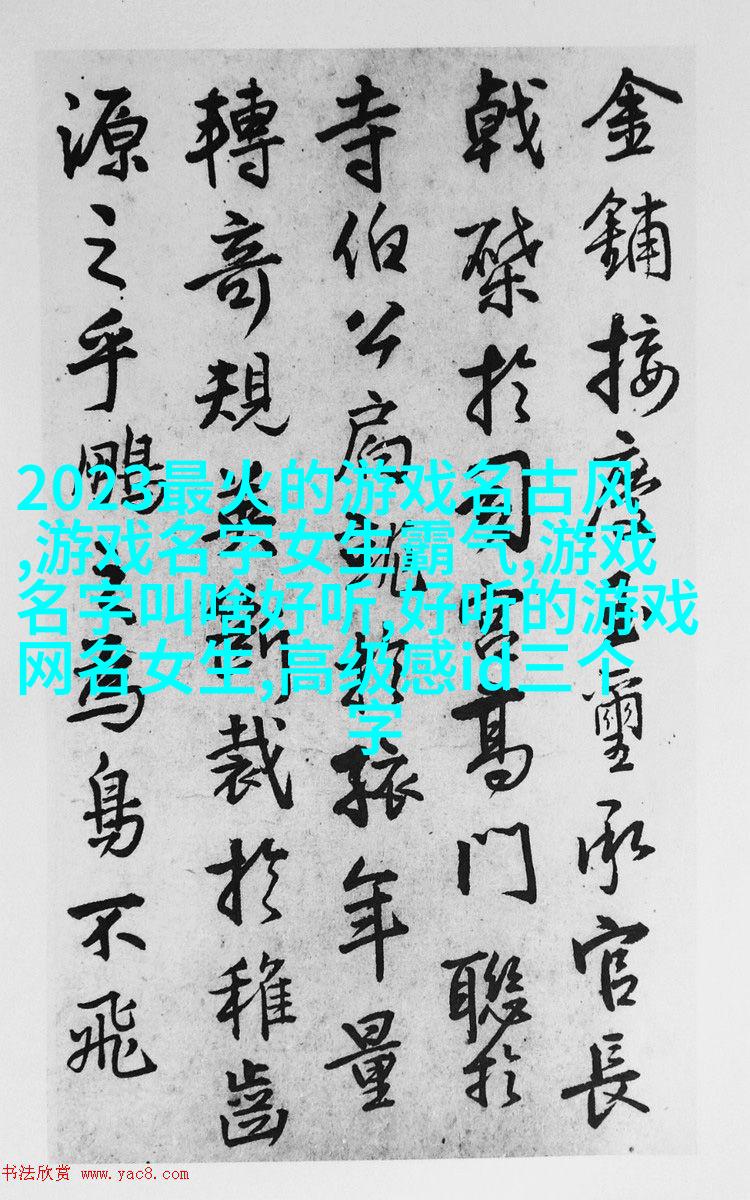 金鋪接慶璽承官長
戟棨於司宮高門聯於
寺伯公孩年量
轉奇規裁於稚齒
源之乎鵬之為鳥不飛
2023最火的游戏名古风
,游戏名字女生霸气,游戏
名字叫啥好听,好听的游戏
网名女生,高级感id三个
字
书法欣赏 www.yac8.com